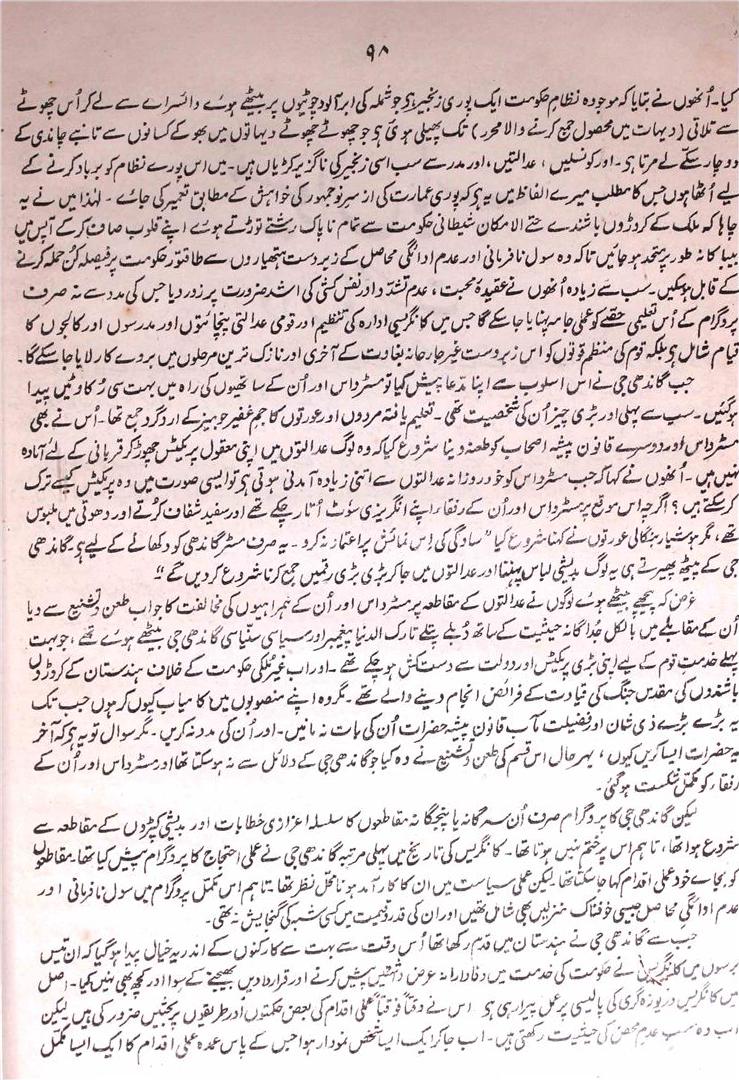 ۹۸
کیا۔ اُنھوں نے بتایا کہ موجودہ نظامِ حکومت ایک پوری زنجیر ہی جو شملہ کی ابر آلود چوٹیوں پر بیٹھے ہوئے وائسرائے سے لے کر اُس چھوٹے
سے تلاتی (دیہات میں محصول جمع کرنے والا محرر) تک پھیلی ہوئی ہی جو چھوٹے چھوٹے دیہاتوں میں بھوکے کسانوں سے تانبے چاندی کے
دو چار سکّے لے مرتا ہی۔ اور کونسلیں، عدالتیں، اور مدرسے سب اسی زنجیر کی ناگزیر کڑیاں ہیں۔ میں اس پورے نظام کو برباد کرنے کے
لیے اُٹھا ہوں جس کا مطلب میرے الفاظ میں یہ ہی کہ پوری عمارت کی از سرِ نو جمہور کی خواہش کے مطابق تعمیر کی جائے۔ لہٰذا میں نے یہ
چاہا کہ ملک کے کروڑوں باشندے حتےٰ الامکان شیطانی حکومت سے تمام ناپاک رشتے توڑتے ہوئے اپنے قلوب صاف کر کے آپس میں
بیباکانہ طور پر متحد ہو جائیں تاکہ وہ سول نافرمانی اور عدم ادائگی محاصل کے زبردست ہتھیاروں سے طاقتور حکومت پر فیصلہ کن حملہ کرنے
کے قابل ہو سکیں۔ سب سے زیادہ اُنھوں نے عقیدۂ محبت، عدم تشدّد اور نفس کشی کی اشد ضرورت پر زور دیا جس کی مدد سے نہ صرف
پروگرام کے اُس تعلیمی حصّے کو عملی جامہ پہنایا جا سکے گا جس میں کانگریسی ادارہ کی تنظیم اور قومی عدالتی پنچائتوں اور مدرسوں اور کالجوں کا
قیام شامل ہی بلکہ قوم کی منظم قوتوں کو اس زبردست غیر جارحانہ بغاوت کے آخری اور نازک ترین مرحلوں میں بروے کار لایا جا سکے گا۔
جب گاندھی جی نے اس اسلوب سے اپنا مدّعا پیش کیا تو مسٹر داس اور اُن کے ساتھیوں کی راہ میں بہت سی رکاوٹیں پیدا
ہو گئیں۔ سب سے پہلی اور بڑی چیز اُن کی شخصیت تھی۔ تعلیم یافتہ مردوں اور عورتوں کا جمِ غفیر جوہیز کے اردگرد جمع تھا۔ اُس نے بھی
مسٹر داس اور دوسرے قانون پیشہ اصحاب کو طعنہ دینا شروع کیا کہ وہ لوگ عدالتوں میں اپنی معقول پریکٹس چھوڑ کر قربانی کے لئے آمادہ
نہیں ہیں۔ اُنھوں نے کہا کہ جب مسٹر داس کو خود روزانہ عدالتوں سے اتنی زیادہ آمدنی ہوتی ہی تو ایسی صورت میں وہ پریکٹس کیسے ترک
کر سکتے ہیں؟ اگرچہ اس موقع پر مسٹر داس اور اُن کے رفقاء اپنے انگریزی سوٹ اُتار چکے تھے اور سفید شفاف کُرتے اور دھوتی میں ملبوس
تھے، مگر ہوشیار بنگالی عورتوں نے کہنا شروع کیا "سادگی کی اس نمائش پر اعتماد نہ کرو۔ یہ صرف مسٹر گاندھی کو دکھانے کے لیے ہی۔ گاندھی
جی کے پیٹھ پھیرتے ہی یہ لوگ بدیشی لباس پہننا اور عدالتوں میں جا کر بڑی بڑی رقمیں جمع کرنا شروع کر دیں گے"
غرض کہ پیچھے بیٹھے ہوئے لوگوں نے عدالتوں کے مقاطعہ پر مسٹر داس اور اُن کے ہمراہیوں کی مخالفت کا جواب طعن و تشنیع سے دیا
اُن کے مقابلے میں بالکل جداگانہ حیثیت کے ساتھ دُبلے پتلے تارک الدنیا پیغمبر اور سیاسی سنیاسی گاندھی جی بیٹھے ہوئے تھے، جو بہت
پہلے خدمتِ قوم کے لیے اپنی بڑی پریکٹس اور دولت سے دست کش ہو چکے تھے۔ اور اب غیر ملکی حکومت کے خلاف ہندستان کے کروڑوں
باشندوں کی مقدس جنگ کی قیادت کے فرائض انجام دینے والے تھے۔ مگر وہ اپنے منصوبوں میں کامیاب کیوں کر ہوں جب تک
یہ بڑے بڑے ذی شان اور فضیلت مآب قانون پیشہ حضرات اُن کی بات نہ مانیں۔ اور اُن کی مدد نہ کریں۔ مگر سوال تو یہ ہی کہ آخر
یہ حضرات ایسا کریں کیوں، بہر حال اس قسم کی طعن و تشنیع نے وہ کیا جو گاندھی جی کے دلائل سے نہ ہو سکتا تھا اور مسٹر داس اور اُن کے
رفقاء کو مکمّل شکست ہو گئی۔
لیکن گاندھی جی کا پروگرام صرف اُن سہ گانہ یا پنجگانہ مقاطعوں کا سلسلہ اعزازی خطابات اور بدیشی کپڑوں کے مقاطعہ سے
شروع ہوا تھا، تاہم اس پر ختم نہیں ہوتا تھا۔ کانگریس کی تاریخ میں پہلی مرتبہ گاندھی جی نے عملی احتجاج کا پروگرام پیش کیا تھا۔ مقاطعوں
کو بجائے خود عملی اقدام کہا جا سکتا تھا لیکن عملی سیاست میں ان کا کارآمد ہونا محلِ نظر تھا۔ تاہم اس مکمّل پروگرام میں سول نافرمانی اور
عدم ادائگیِ محاصل جیسی خوفناک منزلیں بھی شامل تھیں اور ان کی قدر و قیمت میں کسی شبہ کی گنجایش نہ تھی۔
جب سے گاندھی جی نے ہندستان میں قدم رکھا تھا اُس وقت سے بہت سے کارکنوں کے اندر یہ خیال پیدا ہو گیا کہ ان تیس
برسوں میں کانگریس نے حکومت کی خدمت میں وفادارانہ عرض داشتیں پیش کرنے اور قراردادیں بھیجنے کے سوا اور کچھ بھی نہیں کیا۔ اصل
میں کانگریس دریوزہ گری کی پالیسی پر عمل پیرا رہی ہی۔ اس نے وقتاً فوقتاً عملی اقدام کی بعض حکمتوں اور طریقوں پر بحثیں ضرور کی ہیں لیکن
اب وہ سب عدمِ محض کی حیثیت رکھتی ہیں۔ اب جا کر ایک ایسا شخص نمودار ہوا جس کے پاس عمدہ عملی اقدام کا ایک ایسا مکمّل